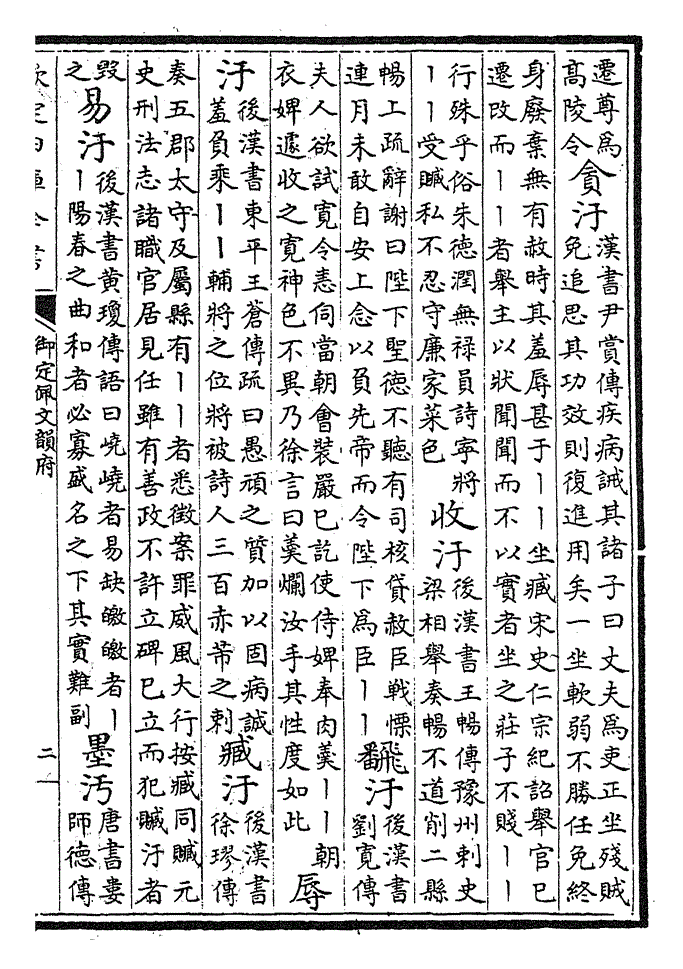 遷尊爲
髙陵令
貪汙
漢書尹賞傳疾病誡其諸子曰丈夫爲吏正坐殘賊
免追思其功效則復進用矣一坐軟弱不勝任免終
身廢棄無有赦時其羞辱甚于丨丨坐臧宋史仁宗紀詔舉官已
遷改而丨丨者舉主以狀聞聞而不以實者坐之莊子不賤丨丨
行殊乎俗朱德潤無禄員詩寧將
丨丨受贓私不忍守廉家菜色
收汙
後漢書王暢傳豫州刺史
梁相舉奏暢不道削二縣
暢上疏辭謝曰陛下聖德不聽有司核貸赦臣戰慄
連月未敢自安上念以負先帝而令陛下爲臣丨丨
飜汙
後漢書
劉寛傳
夫人欲試寛令恚伺當朝會裝嚴已訖使侍婢奉肉羹丨丨朝
衣婢遽收之寛神色不異乃徐言曰羹爛汝手其性度如此
辱
汙
後漢書東平王蒼傳疏曰愚頑之質加以固病誠
羞負乘丨丨輔將之位將被詩人三百赤芾之刺
臧汙
後漢書
徐璆傳
奏五郡太守及屬縣有丨丨者悉徵案罪威風大行按臧同贓元
史刑法志諸職官居見任雖有善政不許立碑已立而犯贓汙者
毁
之
易汙
後漢書黄瓊傳語曰嶢嶢者易缺皦皦者丨
丨陽春之曲和者必寡盛名之下其實難副
墨汚
唐書婁
師德傳
欽定四庫全書
御定佩文韻府
二